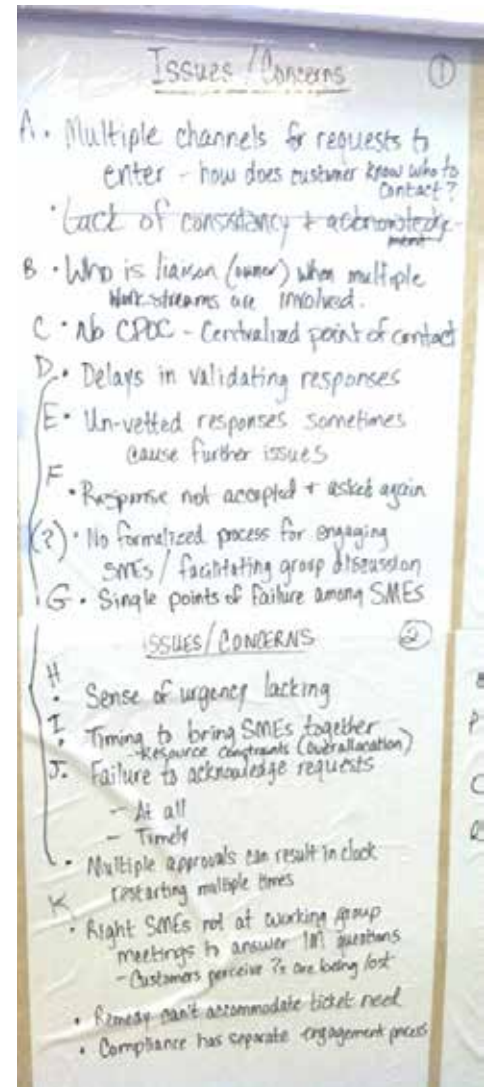 Issues / Concerns ①
A. Multiple channels for requests to
enter - how does customer know who to
contact?
• Lack of consistancy + acknowledge-
ment
B • Who is liaison (owner) when multiple
work streams are involved.
C • No CPOC - Centralized point of contact
D. • Delays in validating responses
E • Un-vetted responses sometimes
cause further issues
F
• Response not accepted + asked again
(?) • No formalized process for engaging
SMEs / facilitating group discussion
G • Single points of failure among SMEs
ISSUES/CONCERNS ②
H
• Sense of urgency lacking
I
• Timing to bring SMEs together
- Resource constraints (overallocation)
J. Failure to acknowledge requests
- At all
- Timely
• Multiple approvals can result in clock
restarting multiple times
K
• Right SMEs not at working group
meetings to answer questions
- Customers perceive ?s are being lost
• Remedy can't accommodate ticket need
• Compliance has separate engagement process